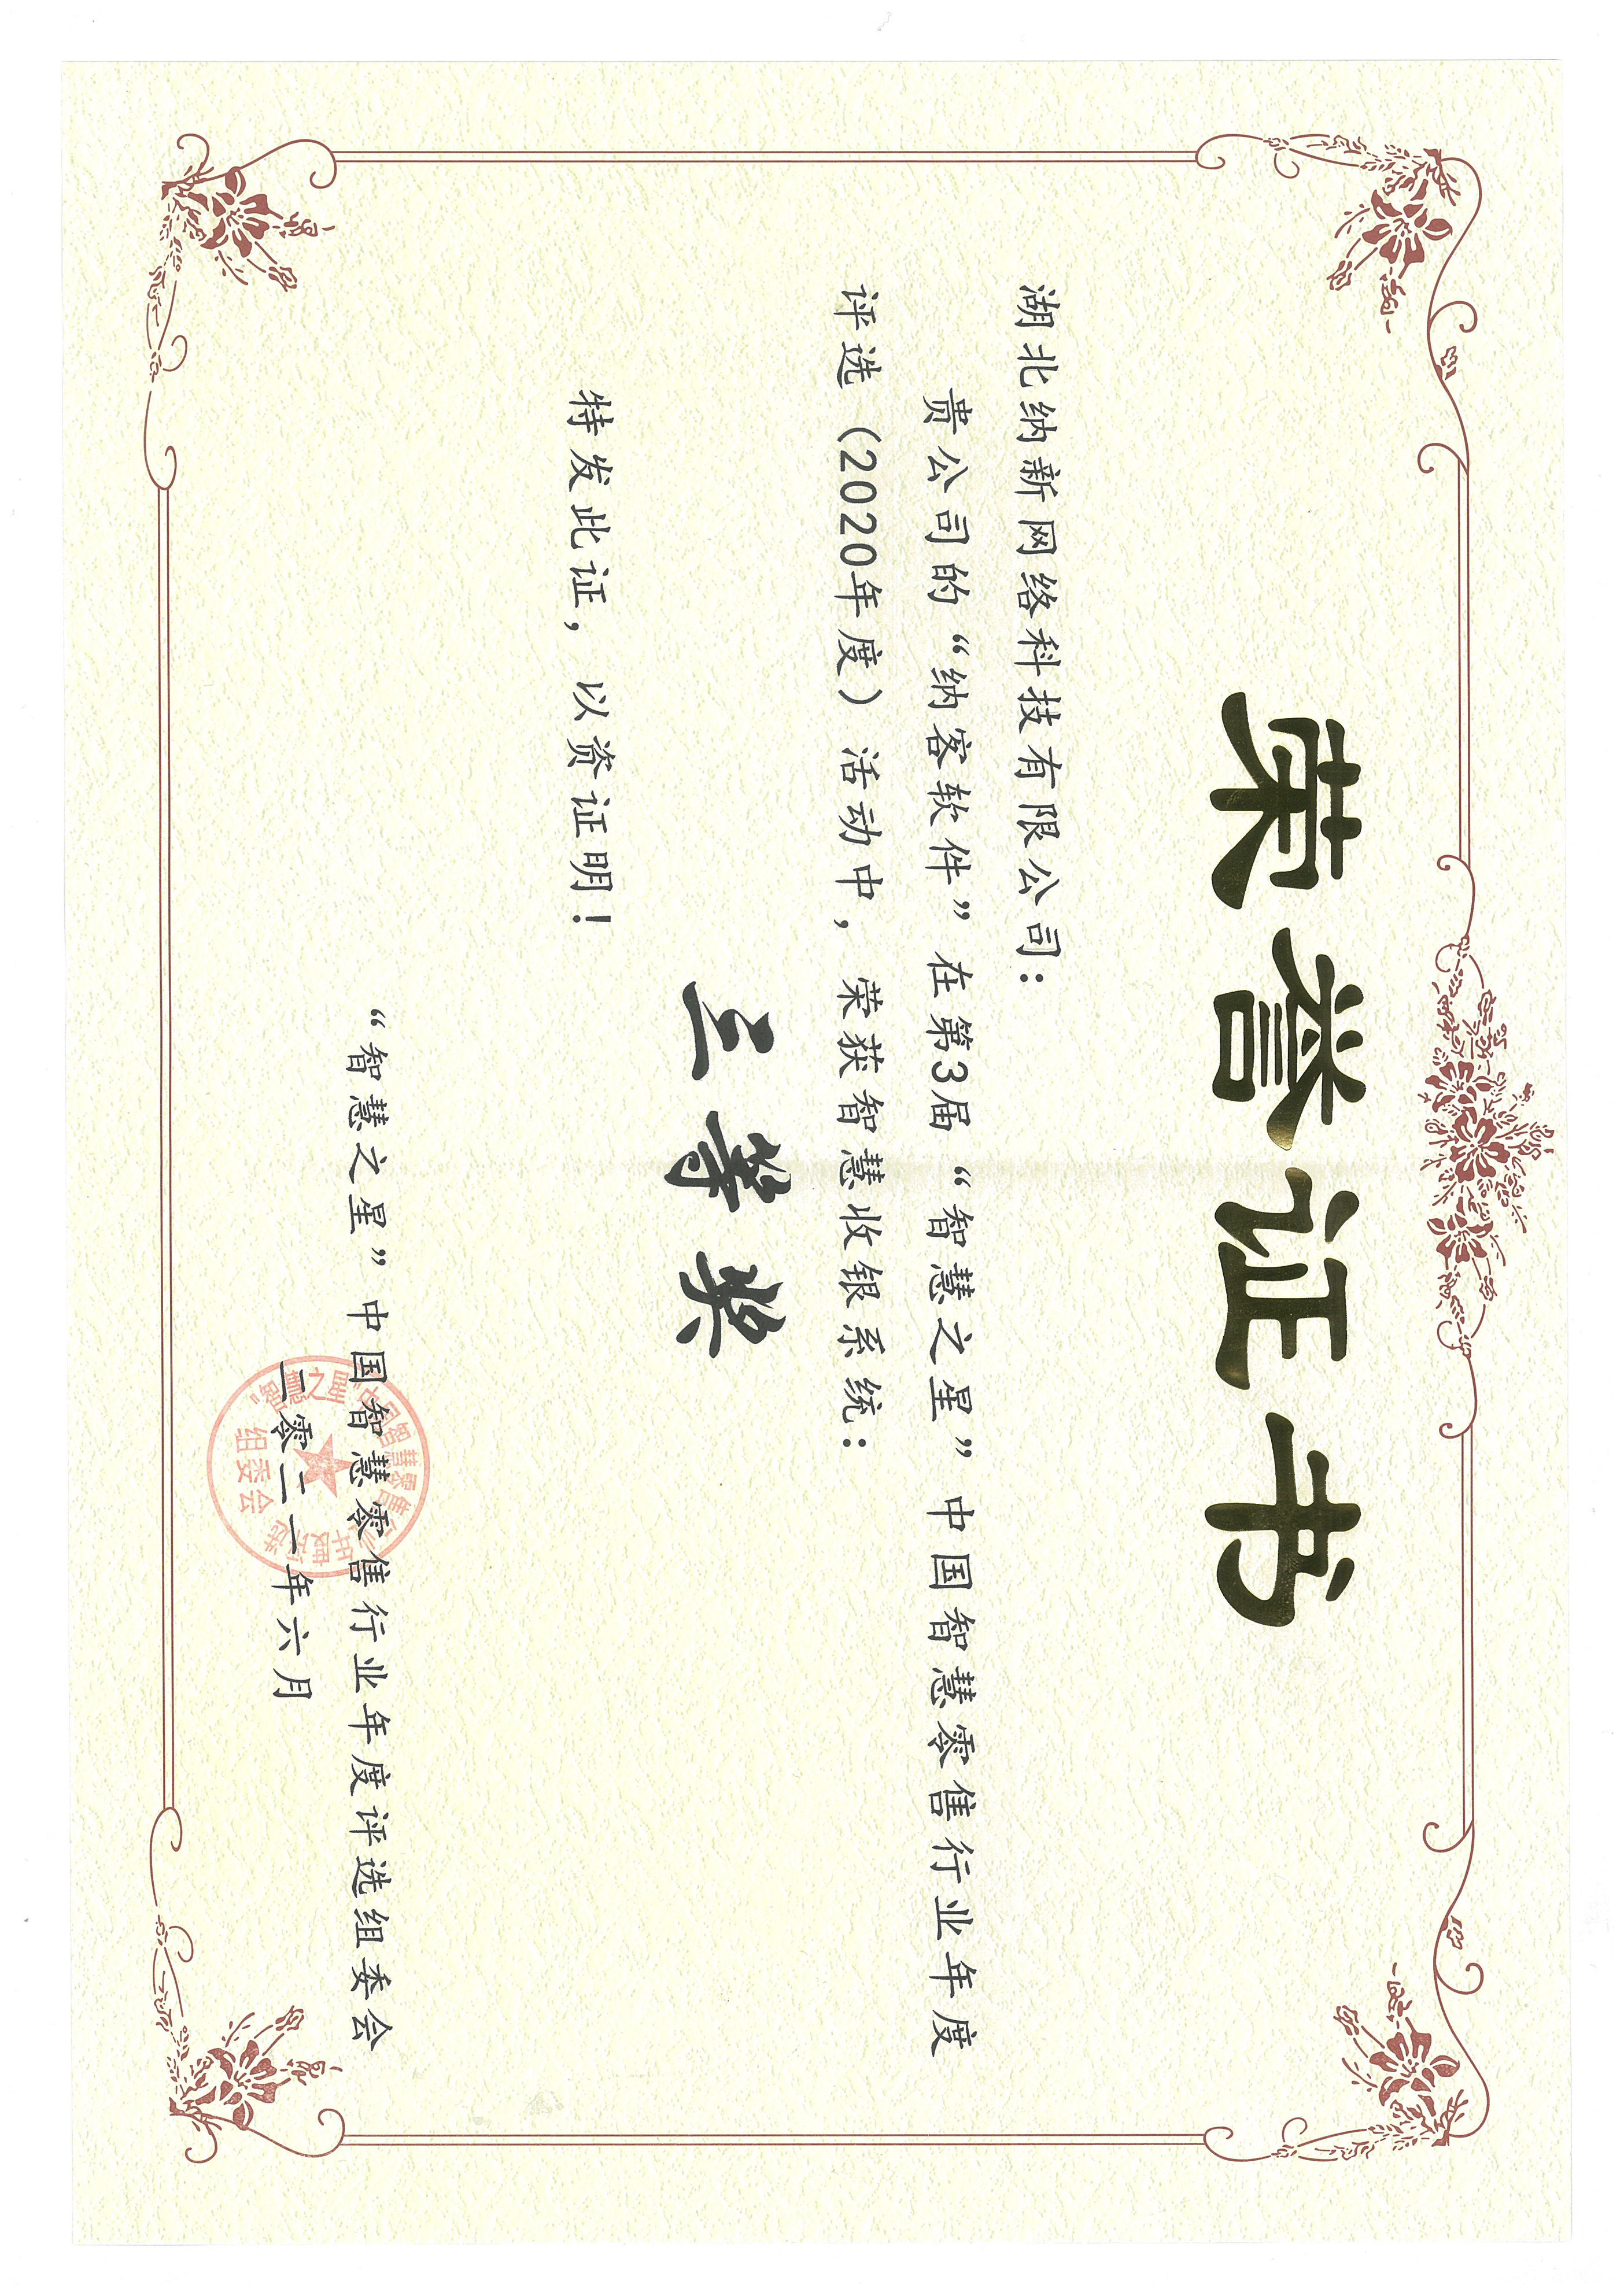 荣誉证书
湖北纳新网络科技有限公司：
贵公司的“纳客软件”在第3届“智慧之星”中国智慧零售行业年度
评选（2020年度）活动中，荣获智慧收银系统：
三等奖
特发此证，以资证明！
“智慧之星”中国智慧零售行业年度评选组委会
二零二一年六月
“智慧之星”中国智慧零售行业年度评选
组委会